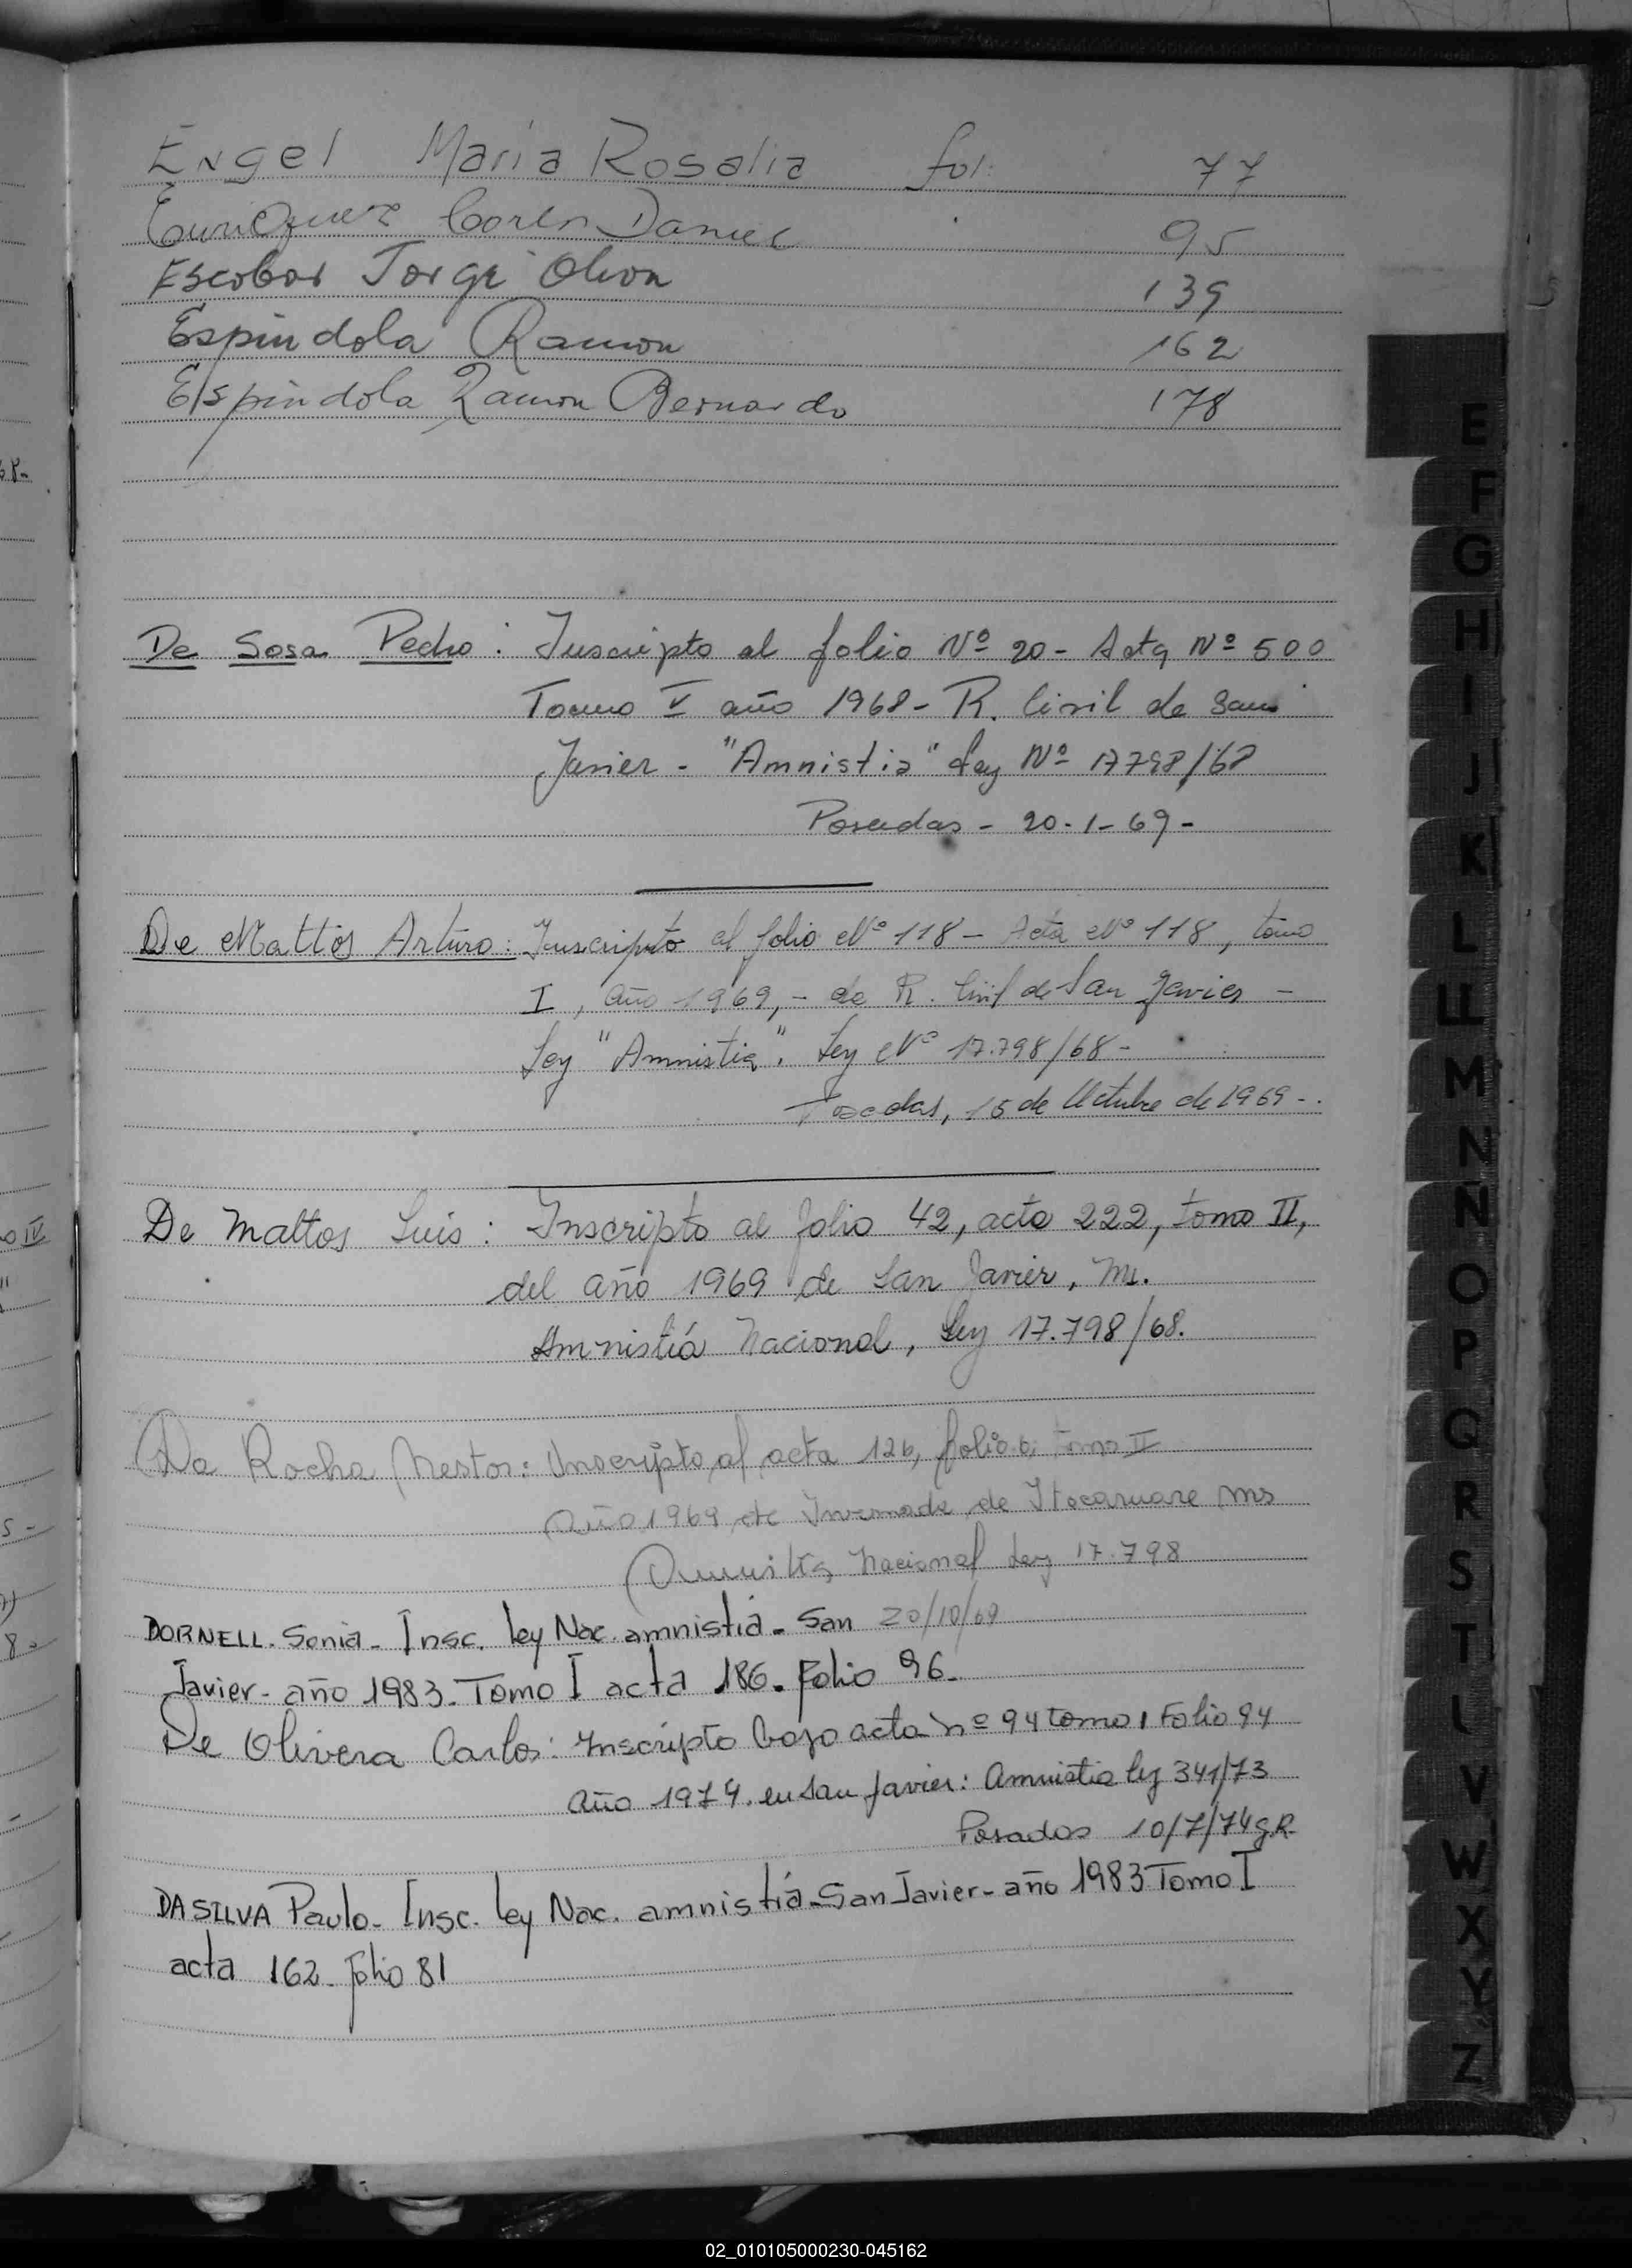 Engel Maria Rosalia fol: 77
Enriquez Carlos Daniel 95
Escobar Jorge 139
Espindola Ramon 162
Espindola Ramon Bernardo 178
De Sosa Pedro: Inscripto al folio Nº 20- Acta Nº 500
Tomo V año 1968- R. Civil de San
Javier - "Amnistia" Ley Nº 17798/68
Posadas - 20-1-69-
De Mattos Arturo: Inscripto al folio Nº 118- Acta Nº 118, tomo
I, año 1969,- de R. Civil de San Javier -
Ley "Amnistia". Ley Nº 17.798/68-
Posadas, 15 de Octubre de 1969-.
De Mattos Luis: Inscripto al folio 42, acta 222, tomo II,
del año 1969 de San Javier, Ms.
Amnistiá Nacional, Ley 17.798/68.
Da Rocha Nestor: Inscripto al acta 126, folio 6, tomo II
Año 1969 de Invernada de Itacaruare Ms
Amnistia Nacional Ley 17.798
20/10/69
DORNELL. Sonia- Insc. Ley Nac. amnistiá- San
Javier- año 1983- Tomo I acta 186. Folio 96-
De Olivera Carlos: Inscripto bajo acta nº 94 tomo I Folio 94
año 1974. en San Javier: Amnistia ley 341/73
Posadas 10/7/74 g.R-
DA SILVA Paulo- Insc. Ley Nac. amnistiá- San Javier- año 1983 Tomo I
acta 162- Folio 81
E
F
G
H
I
J
K
L
LL
M
N
Ñ
O
P
Q
R
S
T
U
V
W
X
Y
Z
02_010105000230-045162